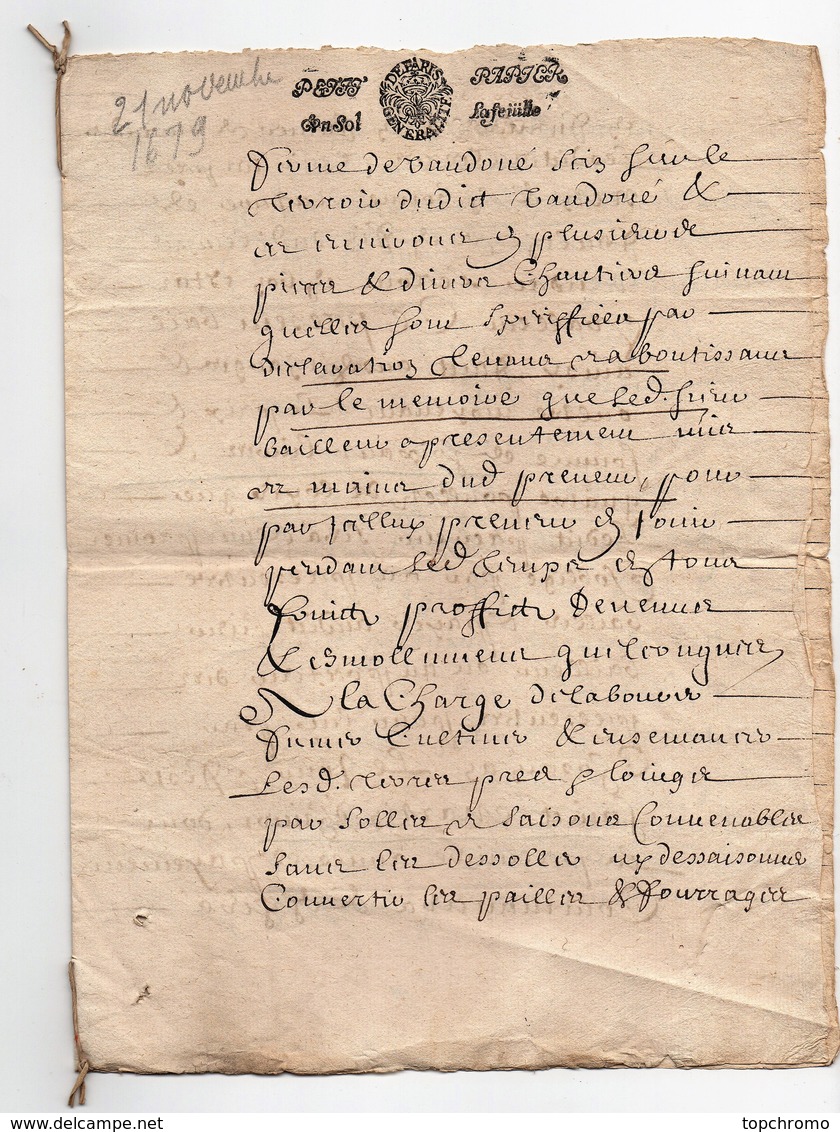 21 novembre
1679
PETIT PAPIER
Un Sol La feüille
GENERALITE DE PARIS
ferme de Vaudoué scize sur le
terroir dudict Vaudoué &
es environs en plusieurs
pieces & divers Chantiers suivant
quelles sont speciffiées par
declaration tenans et aboutissans
par le memoire que led. sieur
bailleur a presentement mis
es mains dud preneur, pour
par Icelluy preneur en Jouir
pendant led temps en tous
fruicts profficts Revenus
& esmollumens quelconques
A la Charge de labourer
fumer Cultiver & ensemancer
lesd. terres prea
par solles et saisons Convenables
sans les dessoller ny dessaisonner
Convertir les pailles & ffourrages
delcampe.net
topchromo